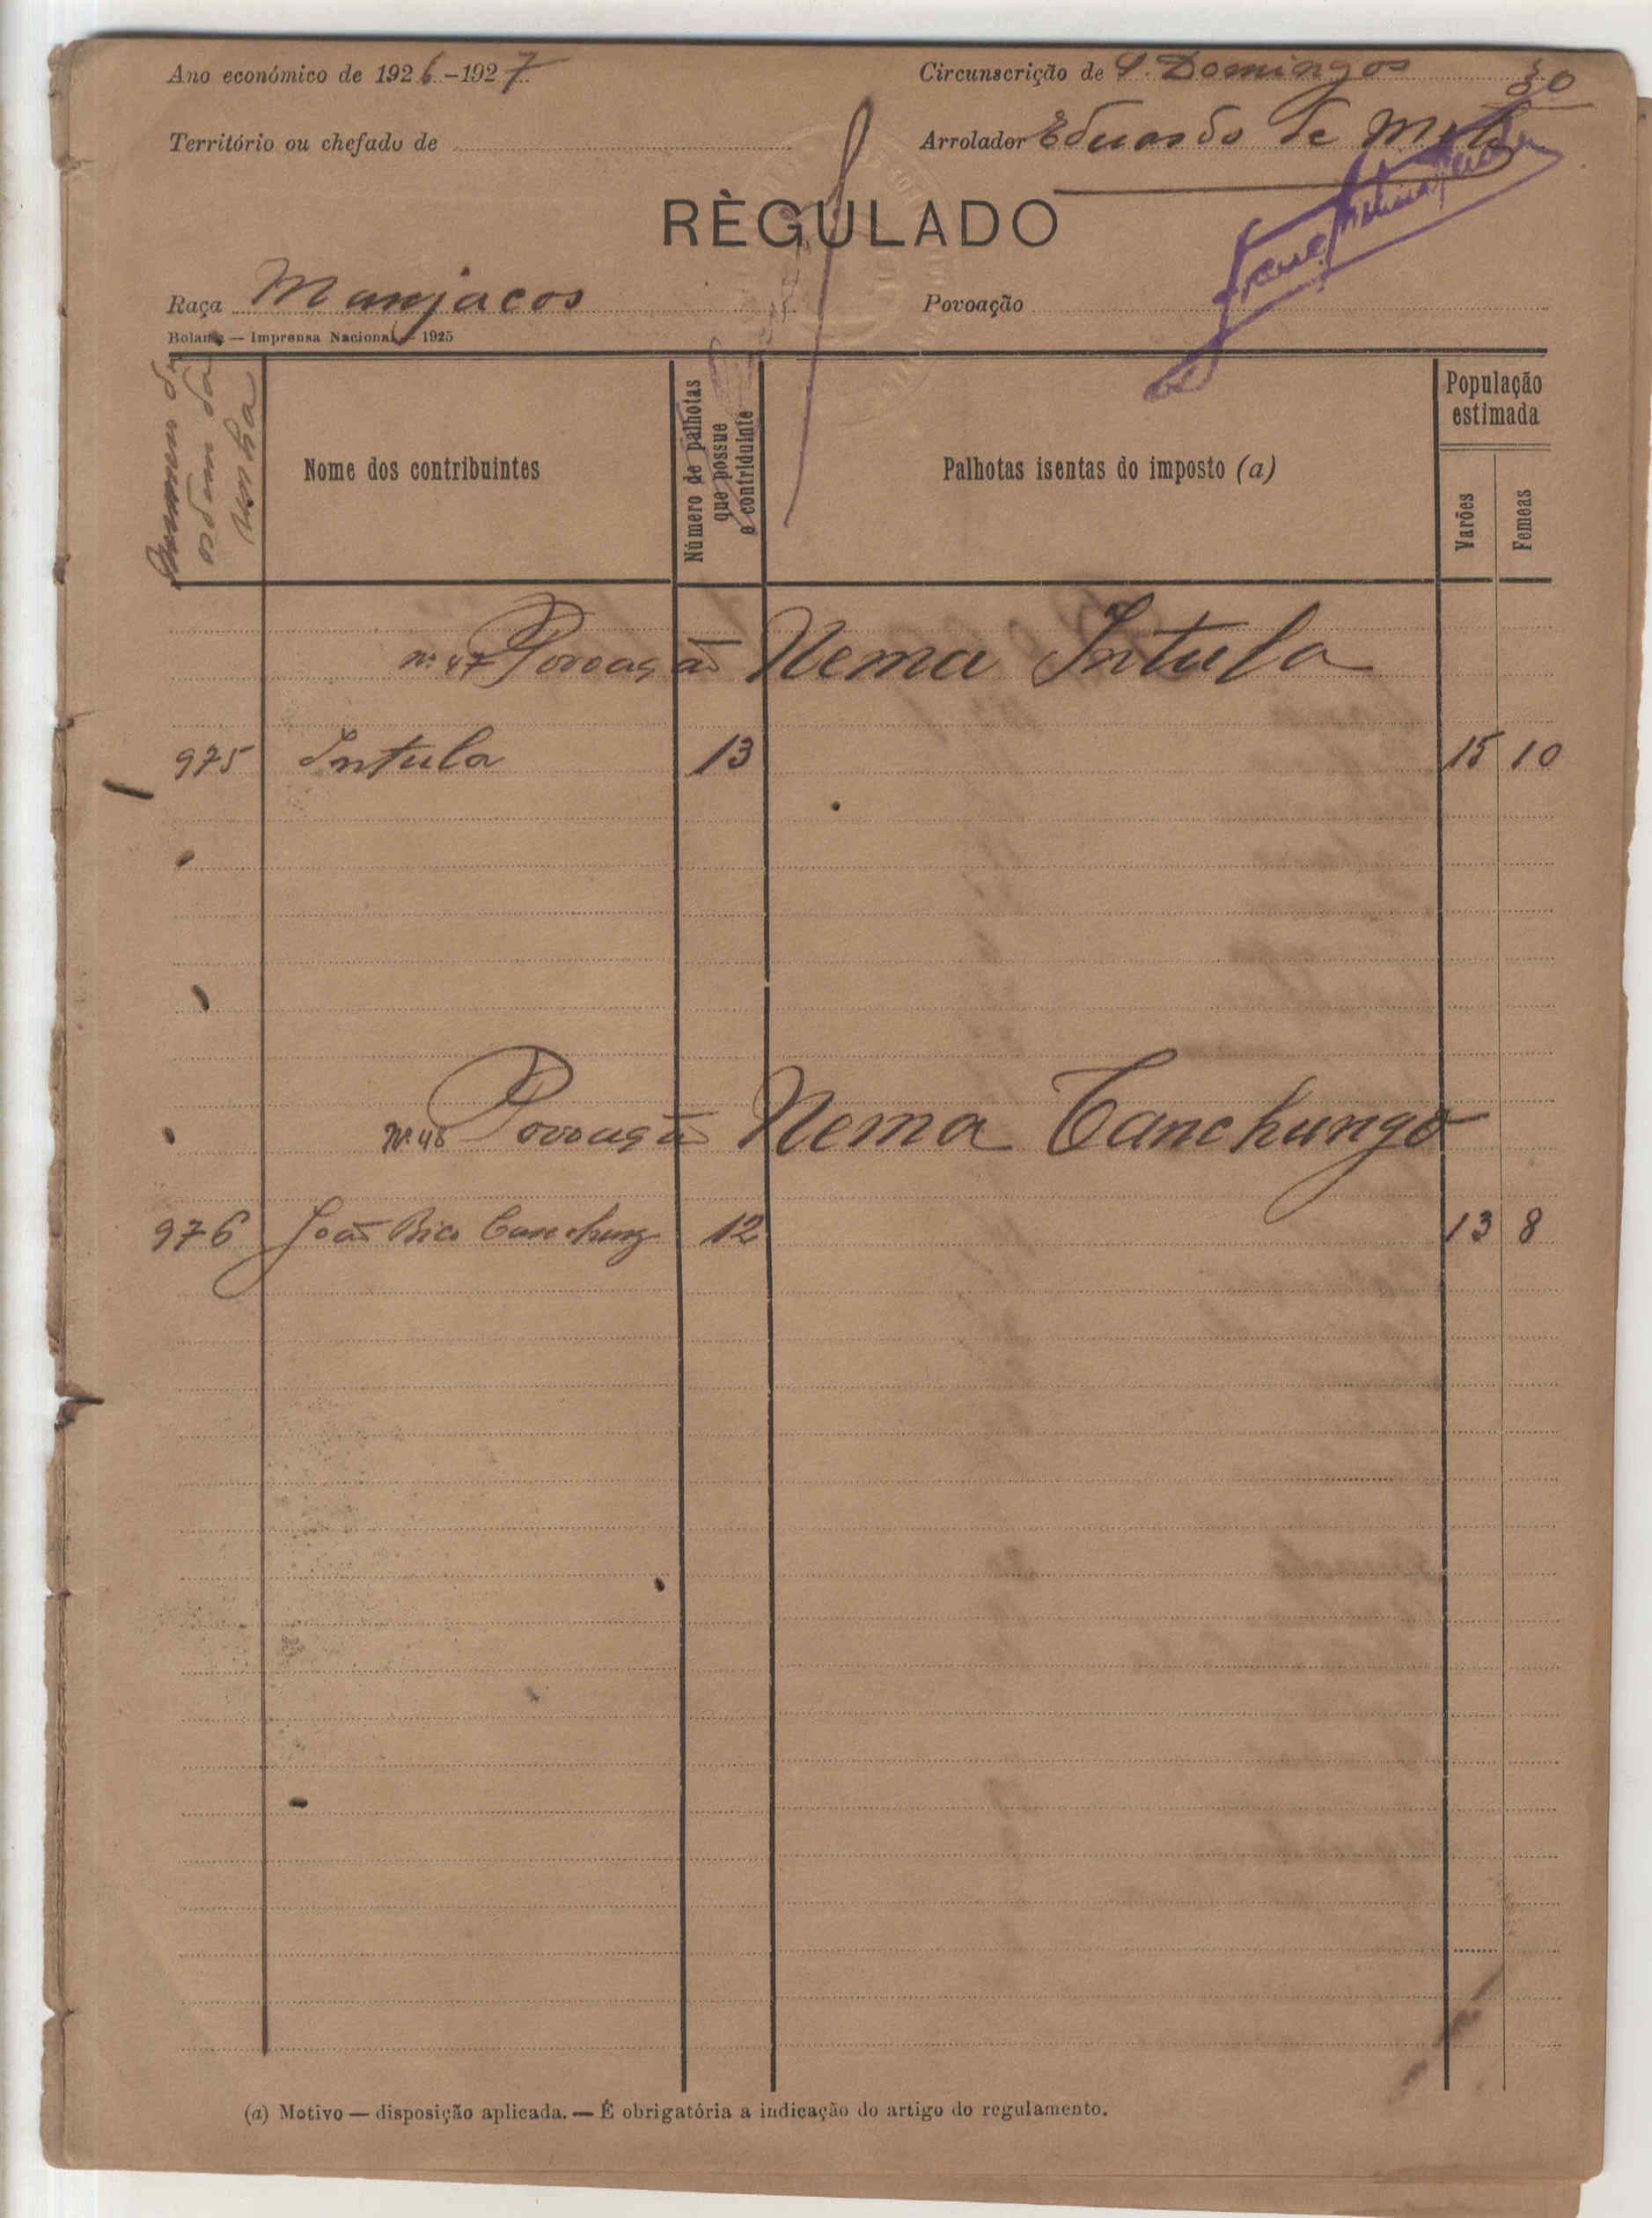 Ano económico de 1926-1927
Circunscrição de S. Domingos
30
Território ou chefado de
Arrolador Eduardo de
RÈGULADO
Raça Manjacos
Povoação
Bolama — Imprensa Nacional — 1925
Nome dos contribuintes
Número de palhotas que possue o contriduinte
Palhotas isentas do imposto (a)
População estimada
Varões
Femeas
nº 47 Povoação Nema Intula
975 Intula 13 15 10
Nº 48 Povoação Nema Canchungo
976 João Bico Canchung 12 13 8
(a) Motivo — disposição aplicada. — É obrigatória a indicação do artigo do regulamento.